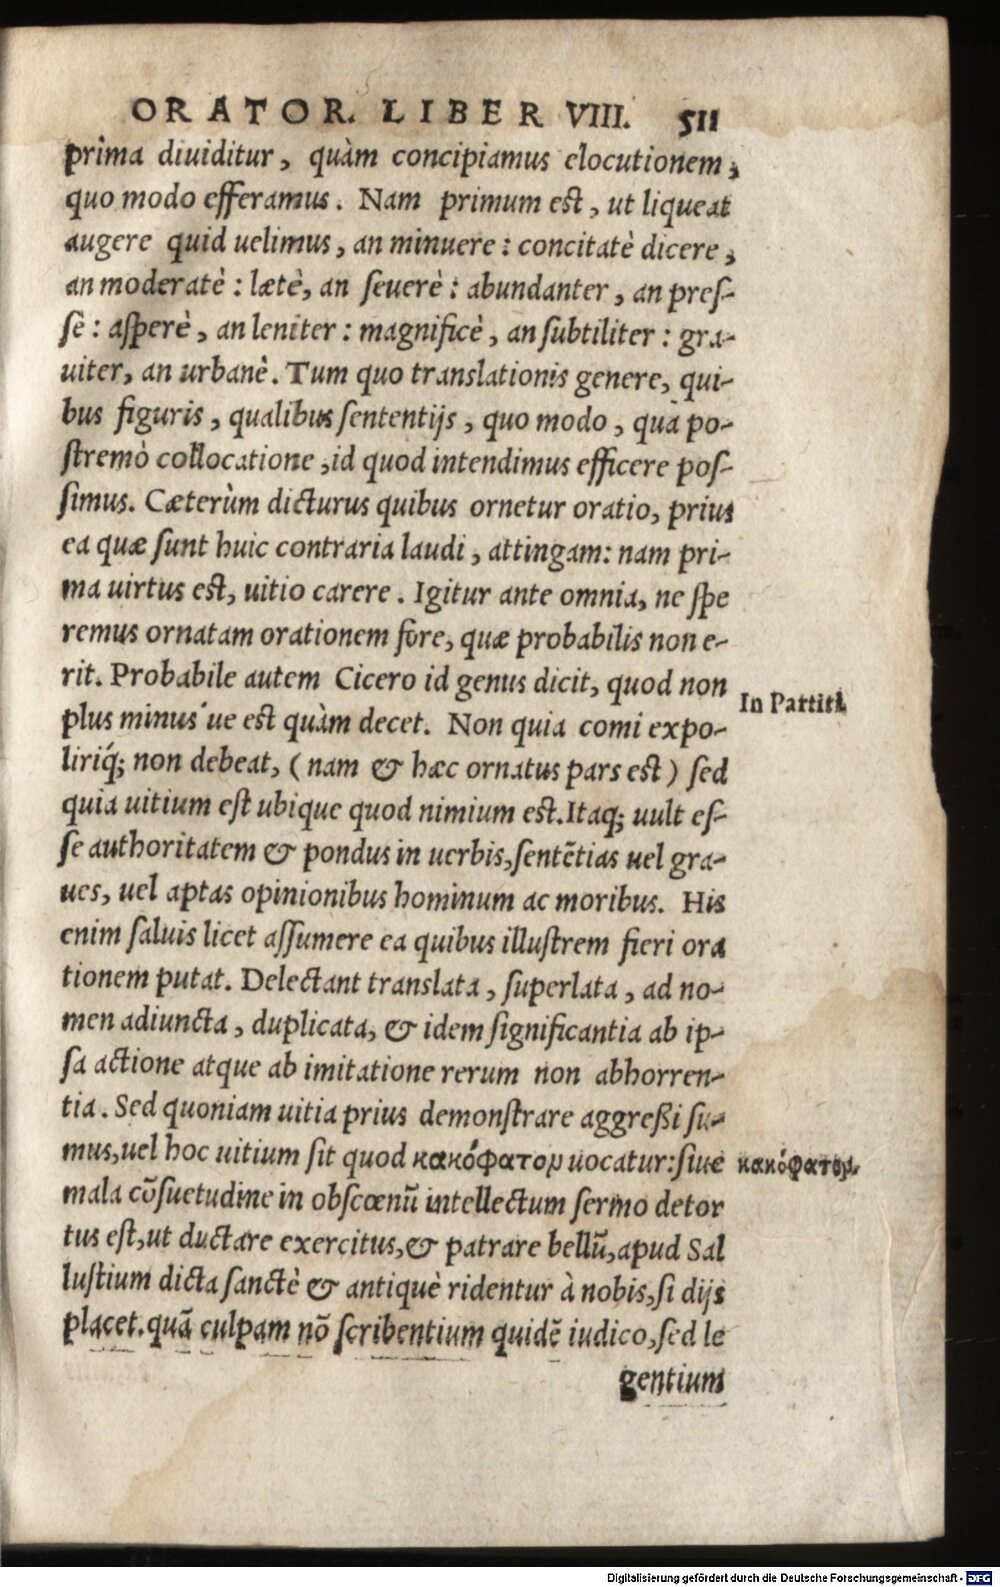 ORATOR. LIBER VIII. 511
prima diuiditur, quàm concipiamus elocutionem,
quo modo efferamus. Nam primum est, ut liqueat
augere quid uelimus, an minuere: concitatè dicere,
an moderatè: lætè, an seuerè: abundanter, an pres-
sè: asperè, an leniter: magnificè, an subtiliter: gra-
uiter, an urbanè. Tum quo translationis genere, qui-
bus figuris, qualibus sententijs, quo modo, qua po-
stremò collocatione, id quod intendimus efficere pos-
simus. Cæterùm dicturus quibus ornetur oratio, prius
ea quæ sunt huic contraria laudi, attingam: nam pri-
ma uirtus est, uitio carere. Igitur ante omnia, ne spe
remus ornatam orationem fore, quæ probabilis non e-
rit. Probabile autem Cicero id genus dicit, quod non
In Partiti.
plus minus'ue est quàm decet. Non quia comi expo-
liriq́; non debeat, (nam & hæc ornatus pars est) sed
quia uitium est ubique quod nimium est. Itaq; uult es-
se authoritatem & pondus in uerbis, sentẽtias uel gra-
ues, uel aptas opinionibus hominum ac moribus. His
enim saluis licet assumere ea quibus illustrem fieri ora
tionem putat. Delectant translata, superlata, ad no-
men adiuncta, duplicata, & idem significantia ab ip-
sa actione atque ab imitatione rerum non abhorren-
tia. Sed quoniam uitia prius demonstrare aggreßi su-
mus, uel hoc uitium sit quod κακόφατον uocatur: siue
κακόφατον.
mala cõsuetudine in obscœnũ intellectum sermo detor
tus est, ut ductare exercitus, & patrare bellũ, apud Sal
lustium dicta sanctè & antiquè ridentur à nobis, si dijs
placet. quã culpam nõ scribentium quidẽ iudico, sed le
gentium
Digitalisierung gefördert durch die Deutsche Forschungsgemeinschaft - DFG